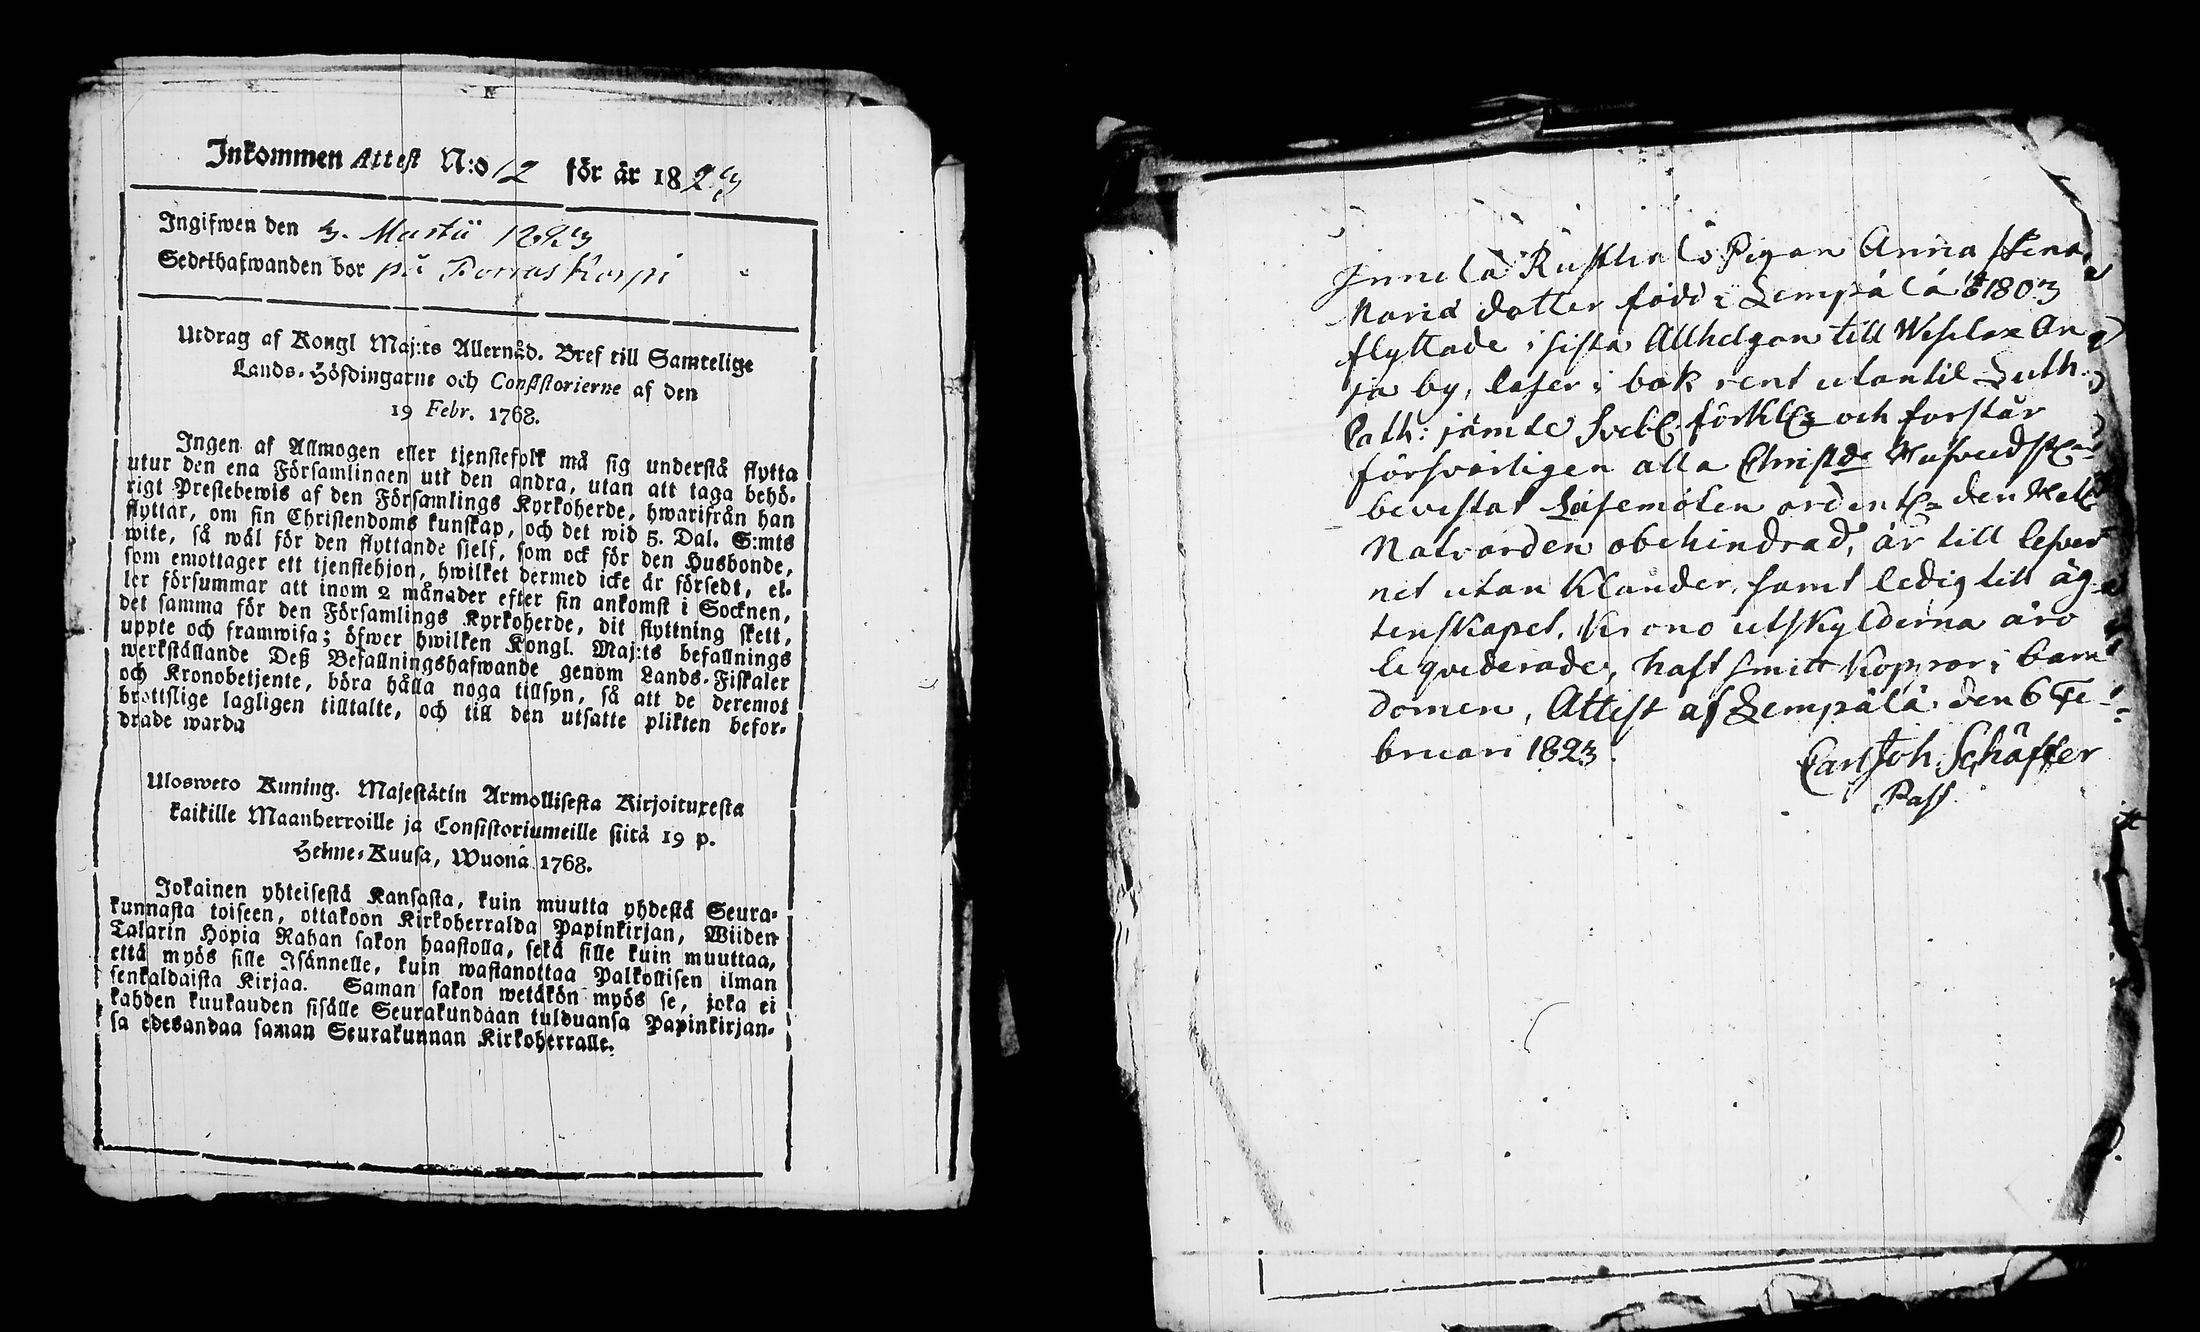 Inkommen Attest N:o 12 för år 1823
Ingifwen den 3. Martii 1823
Sedelhafwanden bor på Porraskorpi
Utdrag af Kongl Maj:ts Allernåd. Bref till Samtelige
Lands-Höfdingarne och Consistorierne af den
19 Febr. 1768.
Ingen af Allmogen eller tjenstefolk må sig understå flytta
utur den ena Församlingen uti den andra, utan att taga behö-
rigt Prestebewis af den Församlings Kyrkoherde, hwarifrån han
flyttar, om sin Christendoms kunskap, och det wid 5. Dal. S:mts
wite, så wäl för den flyttande sielf, som ock för den Husbonde,
som emottager ett tjenstehjon, hwilket dermed icke är försedt, el-
ler försummar att inom 2 månader efter sin ankomst i Socknen,
det samma för den Församlings Kyrkoherde, dit flyttning skett,
uppte och framwisa; öfwer hwilken Kongl. Maj:ts befallnings
werkställande Deß Befallningshafwande genom Lands-Fiskaler
och Kronobetjente, böra hålla noga tillsyn, så att de deremot
brottslige lagligen tilltalte, och till den utsatte plikten befor-
drade warda
Ulosweto Kuning. Majestätin Armollisesta Kirjoituxesta
kaikille Maanherroille ja Consistoriumeille siitä 19 p.
Helme-Kuusa, Wuonna 1768.
Jokainen yhteisestä Kansasta, kuin muutta yhdestä Seura-
kunnasta toiseen, ottakoon Kirkoherralda Papinkirjan, Wiiden
Talarin Hopia Rahan sakon haastolla, sekä sille kuin muuttaa,
että myös sille Isännelle, kuin wastanottaa Palkollisen ilman
senkaldaista Kirjaa. Saman sakon wetäkön myös se, joka ei
kahden kuukauden sisälle Seurakundaan tulduansa Papinkirjan-
sa edesandaa saman Seurakunnan Kirkoherralle.
Innila Rusth Pigan Anna Stena
Maria dotter född i Lempälä 1803
flyttade i sista Allhelgon till Wesilax An
ja by, läser i bok rent utantil Luth.
Cath: jämte Sveb. förkl. och förstår
försvarligen alla Christd. Hufvudst.
bevistat Läsemöten ordentl. den Hel.
Natvarden obehindrad, är till lefver
net utan klander, samt ledig till äg-
tenskapet, Krono utskylderna äro
liqviderade, haft smitt koppor i barn
domen, Attest af Lempälä den 6 Fe-
bruari 1823.
Carl Joh. Schäffer
Past.